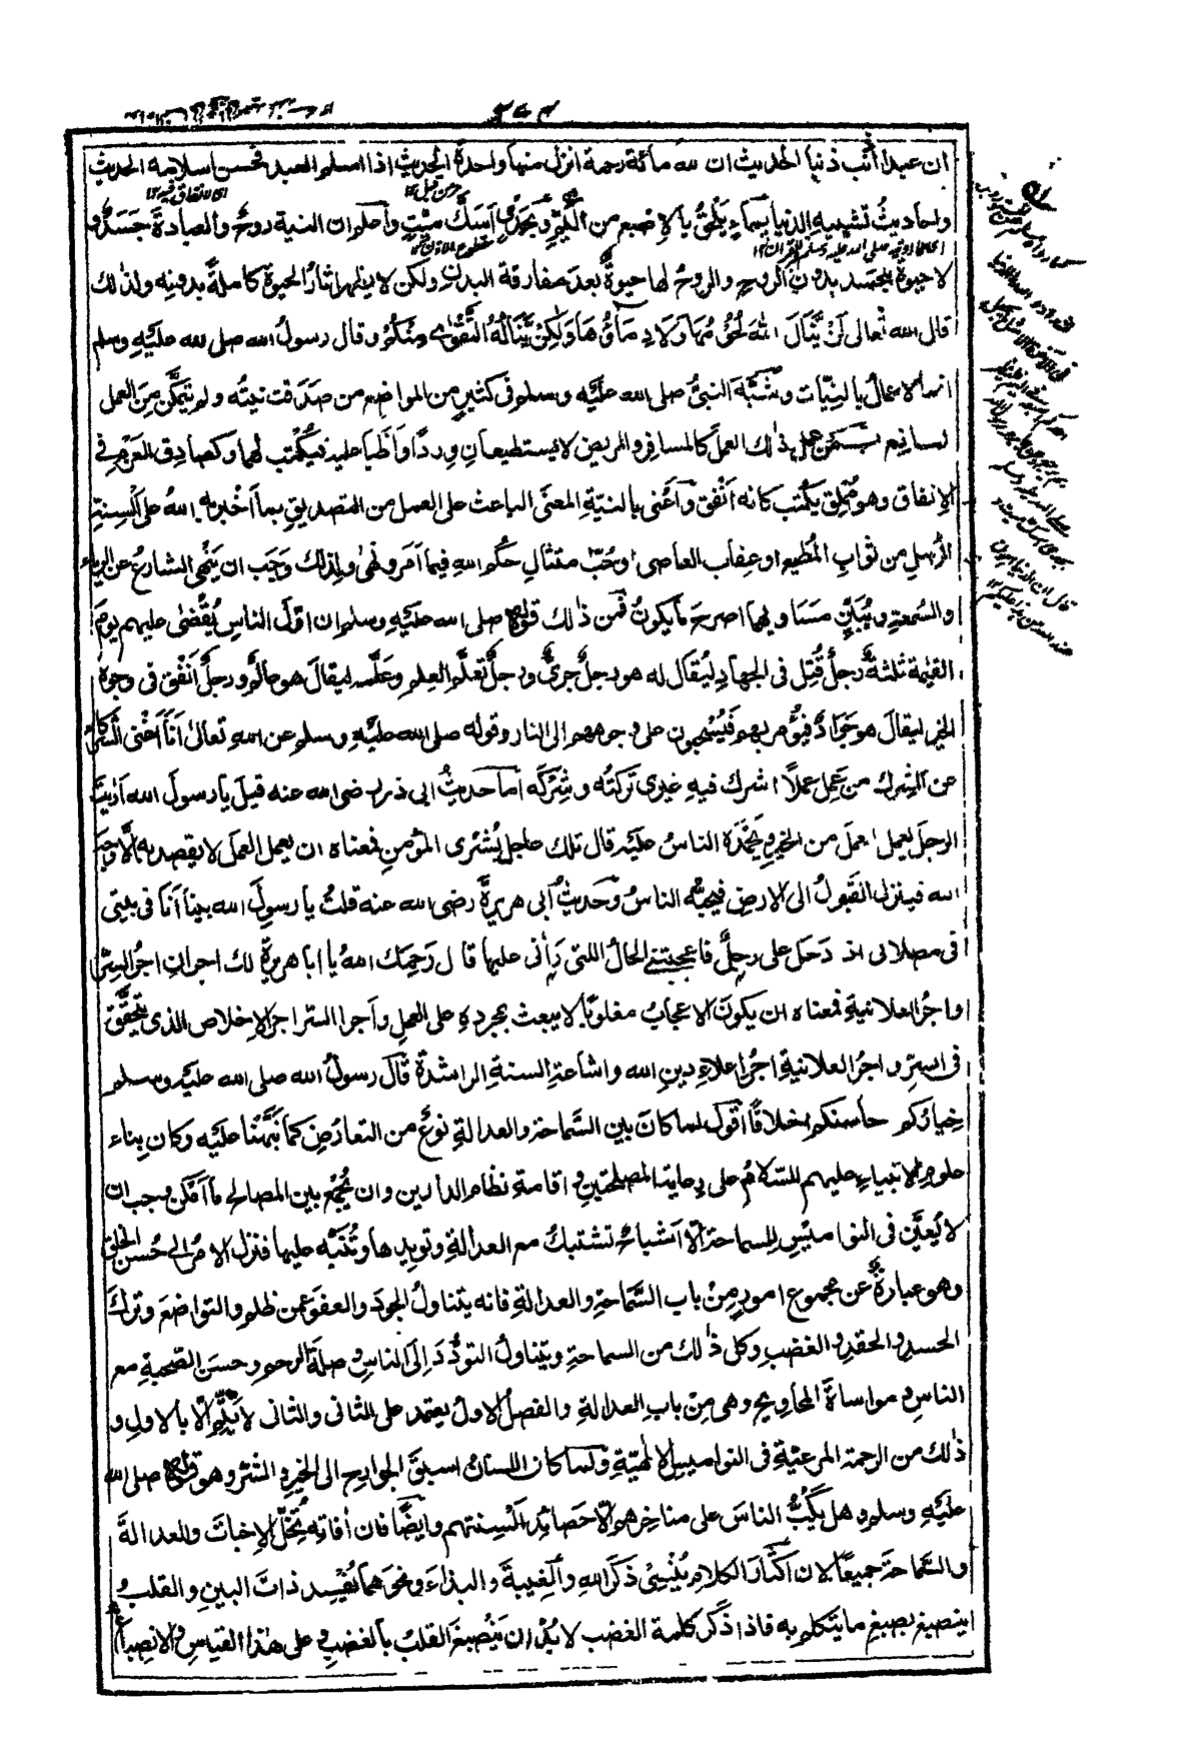 ان عبدا أذنب ذنبا الحديث ان لله مائة رحمة انزل منها واحدة الحديث اذا اسلم العبد فحسن اسلامه الحديث
واحاديثُ تشبيهِ الدنيا بماءٍ يَلْحَقُ بالاِصْبع من اليَمِّ وبجَدْيٍ اَسَكَّ ميّتٍ واعلم ان النية روحٌ والعبادةَ جَسَدٌ و
لا حيوةَ للجسد بدون الروحِ والروحُ لها حيوةٌ بعدَ مفارقة البدن ولكن لا يظهر اٰثارُ الحيوة كاملةً بدونه ولذٰلك
قال الله تعالى لَنْ يَّنَالَ اللهَ لُحُوْمُهَا وَلَا دِمَآؤُهَا وَلٰكِنْ يَّنَالُهُ التَّقْوٰى مِنْكُمْ وقال رسولُ الله صلى الله عليْهِ وسلم
انما الاعمالُ بالنِيّات وشَبَّهَ النبىُّ صلى الله عليْه وسلم فى كثيرٍ من المواضع من صَدَقت نيتُه ولم يتمكَّن مِنَ العمل
لمانع بمن عمل ذٰلك العملَ كالمسافر والمريض لا يستطيعان وِردًا وَاظَبا عليه فيُكْتب لهما وكصادِق العَزْمِ فى
الاِنفاق وهو مُمْلِق يكتب كانه اَنْفق وأعْنى بالنيّةِ المعنَى الباعث على العمل من التصديقِ بما اَخْبر به اللهُ على اَلْسِنَةِ
الرُّسلِ من ثوابِ المُطيع او عِقاب العاصى اوحُبّ امتثالِ حُكْم اللهِ فيما اَمَر ونَهٰى ولذلك وَجَب ان يَنْهى الشارعُ عن الرياء
والسُّمعةِ ويُبَيِّن مَسَاويهما اصرحَ ما يكونُ فمن ذٰلك قولُه صلى الله عليْهِ وسلم ان اوّلَ الناسِ يُقْضٰى عليهم يومَ
القيٰمة ثلٰثةٌ رجلٌ قُتِل فى الجهادِ ليُقالَ له هو رجلٌ جرىٌّ ورجلٌ تعلَّم العِلم وعَلَّمه ليقالَ هو عالمٌ ورجلٌ اَنْفق فى وجوهِ
الخير ليقالَ هو جَوَادٌ فيُؤْمر بهم فَيُسْحبون على وجوههم الى النار وقوله صلى الله عليْهِ وسلم عن الله تعالىٰ اَنَا اَغْنَى الشُركاءِ
عن الشِرك من عَمِل عملاً اشرك فيهِ غيرى تركتُه وشِرْكَه أما حديثُ ابى ذر رضى الله عنه قيل يا رسولَ الله اَرَايتَ
الرجلَ يعملُ العملَ من الخير ويَحْمَدُه الناسُ عليْه قال تلك عاجلُ بُشْرى المؤمنِ فمعناه ان يعمل العملَ لا يقصد به اِلَّا وجهَ
الله فينزل القَبولُ الى الارضِ فيحبُّه الناسُ وحَديثُ ابى هريرةَ رضى الله عنه قلتُ يا رسولَ الله بينا اَنَا فى بيتى
فى مصلاى اذ دَخَل علىَّ رجلٌ فاعجبتنى الحالُ اللتى رَاٰنى عليها قال رَحِمَك اللهُ يا ابا هريرةَ لك اجرانِ اجرُ السِرِّ
واجرُ العلانيةِ فمعناه ان يكونَ الاعجابُ مغلوبًا لا يبعث بمجردهِ على العملِ وأجرُ السرِّ اجرُ الاِخلاص الذى يتحَقَّقُ
فى السِرِّ واجرُ العلانيةِ اجرُ اِعلاءِ دينِ الله واشاعةِ السنةِ الراشدة قال رسولُ الله صلى الله عليْه وسلم
خِيارُكم احاسنكم اخلاقًا أقول لما كانَ بين السَّماحة والعدالةِ نوعٌ من التعارُضِ كما نَبَّهْنا عليْه وكان بِناء
علومِ الانبياءِ عليهم السّلامُ على رعايةِ المصلحتينِ واقامةِ نظام الدارين وان يُجْمَعَ بين المصالحِ ما اَمْكَن وجب ان
لا يُعيَّن فى النواميسِ للسماحةِ اِلّا اَشْياءُ تشتبكُ مع العدالةِ وتويدها وتُنَبِّه عليها فنزل الامرُ الى حُسْنِ الخلق
وهو عبارةٌ عن مجموعِ امورٍ مِنْ باب السَّماحةِ والعدالةِ فانه يتناولُ الجودَ والعفوَ عمن ظلم والتواضعَ وتركَ
الحسدِ والحقدِ والغضبِ وكل ذٰلك من السماحةِ ويتناولُ التودُّدَ اِلَى الناسِ وصلةَ الرحمِ وحسنَ الصحبةِ مع
الناسِ ومواساةَ المحاويجِ وهى مِنْ بابِ العدالةِ والفصلُ الاولُ يعتمد على الثانى والثانى لا يتِمُّ اِلّا بالاولِ و
ذٰلك من الرحمة المرعيّةِ فى النواميسِ الالٰهيّةِ ولما كان اللسانُ اسبقَ الجوارحِ الى الخيرِ والشرّ وهو قولُه صلى الله
عليْهِ وسلم وهل يَكُبُّ الناسَ على مناخِرهم اِلّا حَصائدُ اَلْسِنتهم وايضًا فان اٰفاتِه تُخِلُّ الاِخباتَ والعدالةَ
والسَّماحةَ جميعًا لان اكثارَ الكلامِ يُنْسِىْ ذِكرَ اللهِ والغِيبةَ والبذاءَ ونحوَهما تُفْسِد ذاتَ البينِ والقلبُ
ينصبغ بصبغِ ما يتكلم به فاذا ذَكَر كلمة الغضبِ لا بُدَّ ان يَنْصبغَ القلبُ بالغضبِ وعلى هٰذا القياسِ والانصباغ